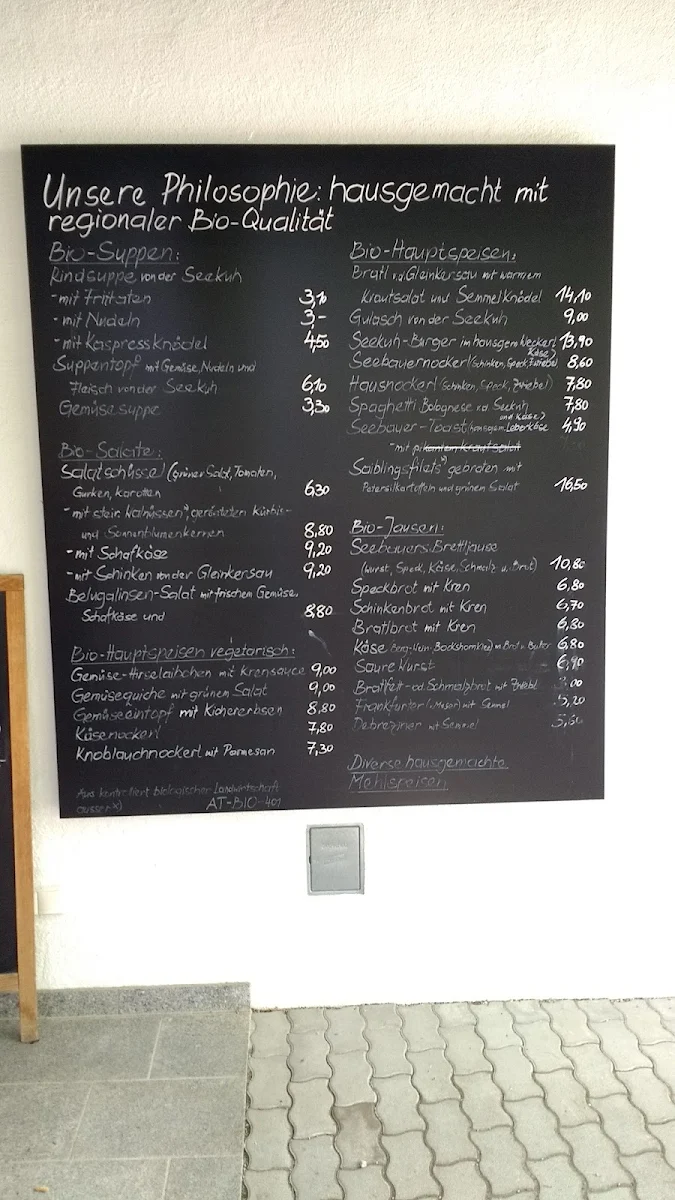 Unsere Philosophie: hausgemacht mit
regionaler Bio-Qualität
Bio-Suppen:
Rindsuppe von der Seekuh
-mit Frittaten 3,10
-mit Nudeln 3,-
-mit Kaspressknödel 4,50
Suppentopf mit Gemüse, Nudeln und
Fleisch von der Seekuh 6,10
Gemüsesuppe 3,30
Bio-Salate:
Salatschüssel (grüner Salat, Tomaten,
Gurken, Karotten 6,30
-mit steir. Walnüssen*), gerösteten Kürbis-
und Sonnenblumenkernen 8,80
-mit Schafkäse 9,20
-mit Schinken von der Gleinkersau 9,20
Belugalinsen-Salat mit frischem Gemüse,
Schafkäse und 8,80
Bio-Hauptspeisen vegetarisch:
Gemüse-Hirselaibchen mit Krensauce 9,00
Gemüsequiche mit grünem Salat 9,00
Gemüseeintopf mit Kichererbsen 8,80
Käsenockerl 7,80
Knoblauchnockerl mit Parmesan 7,30
Aus kontrolliert biologischer Landwirtschaft
ausser x) AT-BIO-401
Bio-Hauptspeisen:
Bratl v.d. Gleinkersau mit warmem
Krautsalat und Semmelknödel 14,10
Gulasch von der Seekuh 9,00
Seekuh-Burger im hausgem. Weckerl 13,90
Seebauernockerl (Schinken, Speck, Zwiebel, Käse) 8,60
Hausnockerl (Schinken, Speck, Zwiebel) 7,80
Spaghetti Bolognese v.d. Seekuh 7,80
Seebauer-Toast (hausgem. Leberkäse und Käse) 4,90
-mit pikantem Krautsalat
Saiblingsfilets*) gebraten mit
Petersilkartoffeln und grünem Salat 16,50
Bio-Jausen:
Seebauers Brettljause
(Wurst, Speck, Käse, Schmalz u. Brot) 10,80
Speckbrot mit Kren 6,80
Schinkenbrot mit Kren 6,70
Bratlbrot mit Kren 6,80
Käse (Berg-, Wein-, Bockshornklee) m. Brot u. Butter 6,80
Saure Wurst
Bratlfett- od. Schmalzbrot mit Zwiebel
Frankfurter mit Semmel 5,20
Debreziner mit Semmel
Diverse hausgemachte
Mehlspeisen